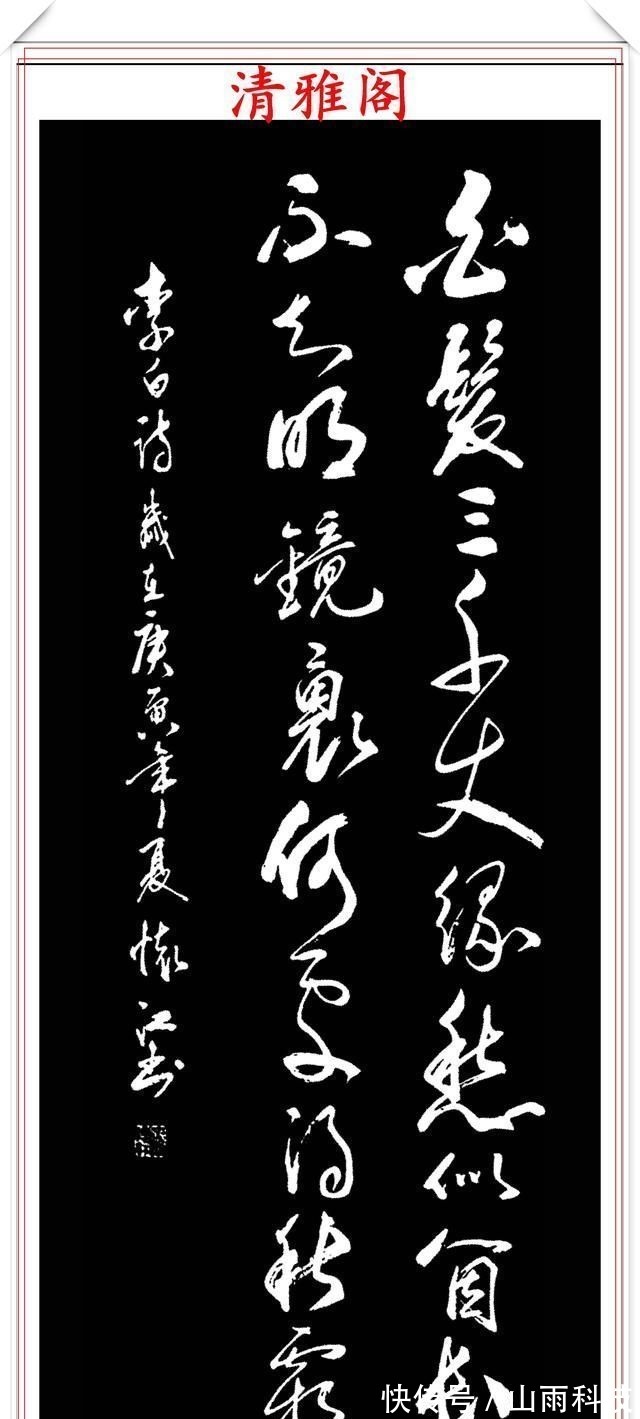 清雅阁
白髮三千丈緣愁似箇長
不知明鏡裏何處得秋霜
李白詩歲在庚寅年夏懷江書
快传号/山雨科技